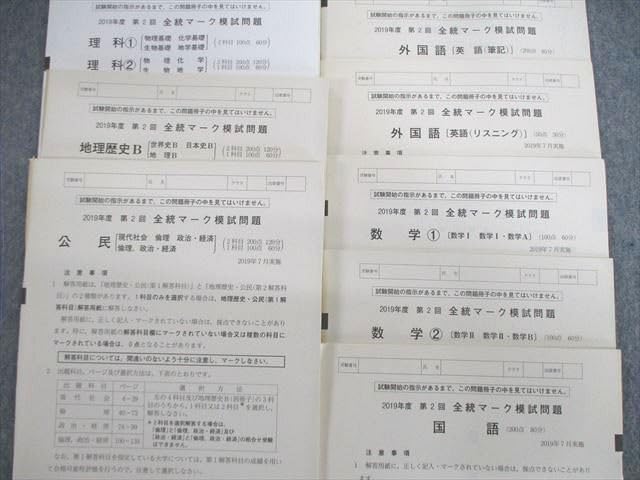 試験開始の指示があるまで、この問題冊子の中を見てはいけません。
2019年度 第2回 全統マーク模試問題
理科① [物理基礎 化学基礎 生物基礎 地学基礎] (2科目 100点 60分)
理科② [物理 化学 生物 地学] (2科目 200点 120分 1科目 100点 60分)
受験番号 氏名 クラス 出席番号
試験開始の指示があるまで、この問題冊子の中を見てはいけません。
2019年度 第2回 全統マーク模試問題
地理歴史B [世界史B 日本史B 地理B] (2科目 200点 120分 1科目 100点 60分)
受験番号 氏名 クラス 出席番号
試験開始の指示があるまで、この問題冊子の中を見てはいけません。
2019年度 第2回 全統マーク模試問題
公民 [現代社会 倫理 政治・経済 倫理、政治・経済] (2科目 200点 120分 1科目 100点 60分)
2019年7月実施
注意事項
1 解答用紙は、「地理歴史・公民(第1解答科目)」と「地理歴史・公民(第2解答科
目)」の2種類があります。1科目のみを選択する場合は、地理歴史・公民(第1
解答科目)解答用紙に解答しなさい。
解答用紙に、正しく記入・マークされていない場合は、採点できないことがあり
ます。特に、解答用紙の解答科目欄にマークされていない場合又は複数の科目に
マークされている場合は、0点となることがあります。
解答科目については、間違いのないよう十分に注意し、マークしなさい。
2 出題科目、ページ及び選択方法は、下表のとおりです。
出題科目 ページ 選択方法
現代社会 4~39
倫理 40~73
政治・経済 74~99
倫理、政治・経済 100~133
左の4科目及び地理歴史B(別冊子)の3科
目のうちから、1科目又は2科目*を選択し、
解答しなさい。
*2科目を選択解答する場合は、
「倫理」と「倫理、政治・経済」及び
「政治・経済」と「倫理、政治・経済」の組合せ受験
はできません。
なお、第1解答科目を指定している大学については、第1解答科目の成績を用い
て合格可能性評価を行うので、注意して選択しなさい。
試験開始の指示があるまで、この問題冊子の中を見てはいけません。
2019年度 第2回 全統マーク模試問題
外国語 [英語(筆記)] (200点 80分)
受験番号 氏名 クラス 出席番号
試験開始の指示があるまで、この問題冊子の中を見てはいけません。
2019年度 第2回 全統マーク模試問題
外国語 [英語(リスニング)] (50点 30分)
2019年7月実施
注意事項
受験番号 氏名 クラス 出席番号
試験開始の指示があるまで、この問題冊子の中を見てはいけません。
2019年度 第2回 全統マーク模試問題
数学① [数学Ⅰ 数学Ⅰ・数学A] (100点 60分)
2019年7月実施
受験番号 氏名 クラス 出席番号
試験開始の指示があるまで、この問題冊子の中を見てはいけません。
2019年度 第2回 全統マーク模試問題
数学② [数学Ⅱ 数学Ⅱ・数学B] (100点 60分)
受験番号 氏名 クラス 出席番号
試験開始の指示があるまで、この問題冊子の中を見てはいけません。
2019年度 第2回 全統マーク模試問題
国語 (200点 80分)
2019年7月実施
注意事項
1 解答用紙に、正しく記入・マークされていない場合は、採点できないことがあり